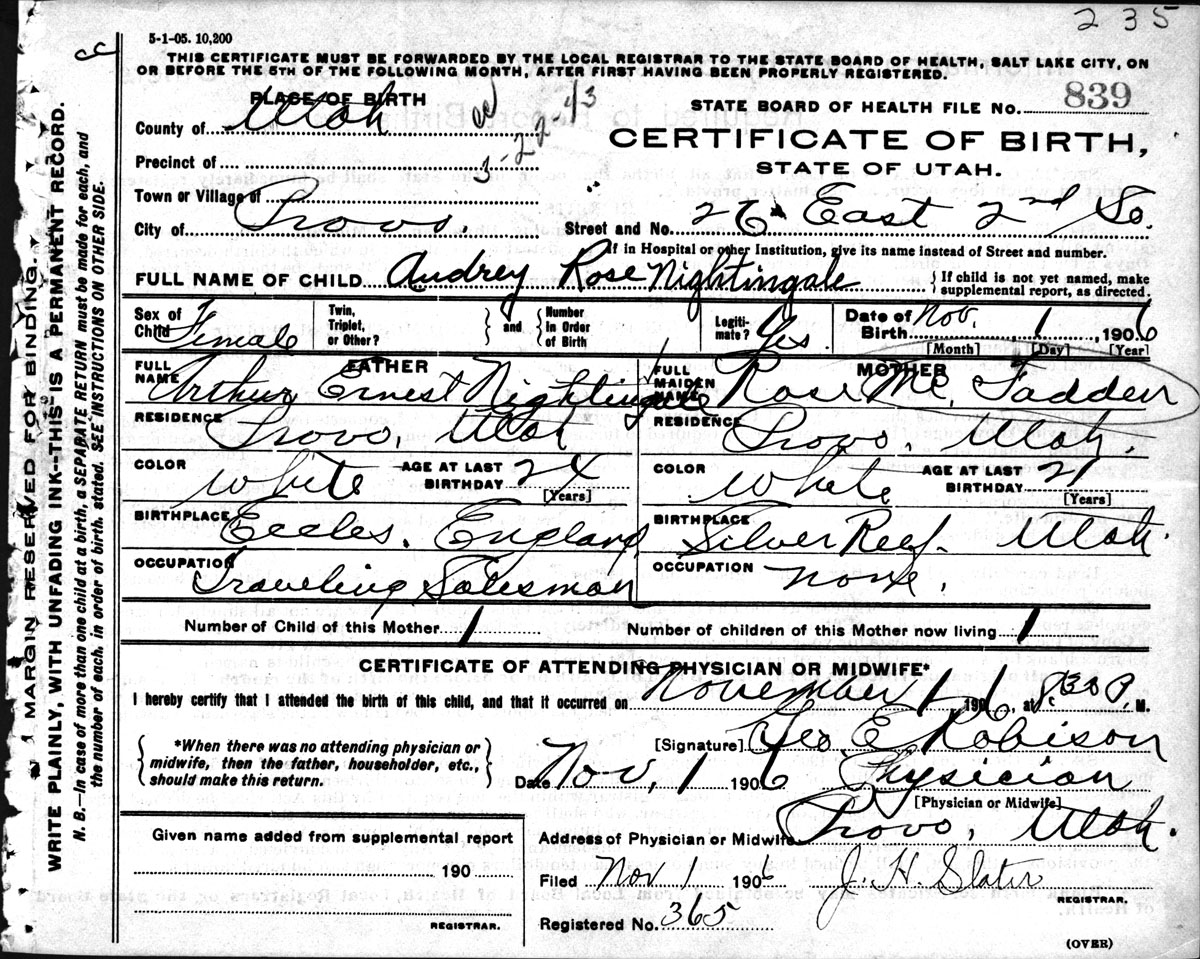 235
5-1-05. 10,200
cc
THIS CERTIFICATE MUST BE FORWARDED BY THE LOCAL REGISTRAR TO THE STATE BOARD OF HEALTH, SALT LAKE CITY, ON
OR BEFORE THE 5TH OF THE FOLLOWING MONTH, AFTER FIRST HAVING BEEN PROPERLY REGISTERED.
PLACE OF BIRTH
STATE BOARD OF HEALTH FILE NO. 839
County of Utah
3-22-43
CERTIFICATE OF BIRTH,
Precinct of
STATE OF UTAH.
Town or Village of
City of Provo. Street and No. 26 East 2nd So.
If in Hospital or other Institution, give its name instead of Street and number.
FULL NAME OF CHILD Audrey Rose Nightingale } If child is not yet named, make
supplemental report, as directed.
Sex of Child Female
Twin, Triplet, or Other? } and { Number in Order of Birth
Legiti-mate? Yes.
Date of Birth Nov. 1, 1906
[Month] [Day] [Year]
FATHER
FULL NAME Arthur Ernest Nightingale
RESIDENCE Provo, Utah
COLOR White AGE AT LAST BIRTHDAY 24
[Years]
BIRTHPLACE Eccles, England
OCCUPATION Traveling Salesman
MOTHER
FULL MAIDEN NAME Rose Mc Fadden
RESIDENCE Provo, Utah.
COLOR White AGE AT LAST BIRTHDAY 21
[Years]
BIRTHPLACE Silver Reef. Utah.
OCCUPATION none.
Number of Child of this Mother 1 Number of children of this Mother now living 1
CERTIFICATE OF ATTENDING PHYSICIAN OR MIDWIFE*
I hereby certify that I attended the birth of this child, and that it occurred on November 1, 1906, at 8:30 P. M.
{ *When there was no attending physician or
midwife, then the father, householder, etc.,
should make this return. }
[Signature] Geo. E. Robison
Date Nov, 1 1906 Physician
[Physician or Midwife]
Address of Physician or Midwife Provo, Utah.
Given name added from supplemental report
190
REGISTRAR.
Filed Nov 1 1906 J. H. Slater
REGISTRAR.
Registered No. 365
(OVER)
MARGIN RESERVED FOR BINDING
WRITE PLAINLY, WITH UNFADING INK--THIS IS A PERMANENT RECORD.
N. B.—In case of more than one child at a birth, a SEPARATE RETURN must be made for each, and
the number of each, in order of birth, stated. SEE INSTRUCTIONS ON OTHER SIDE.